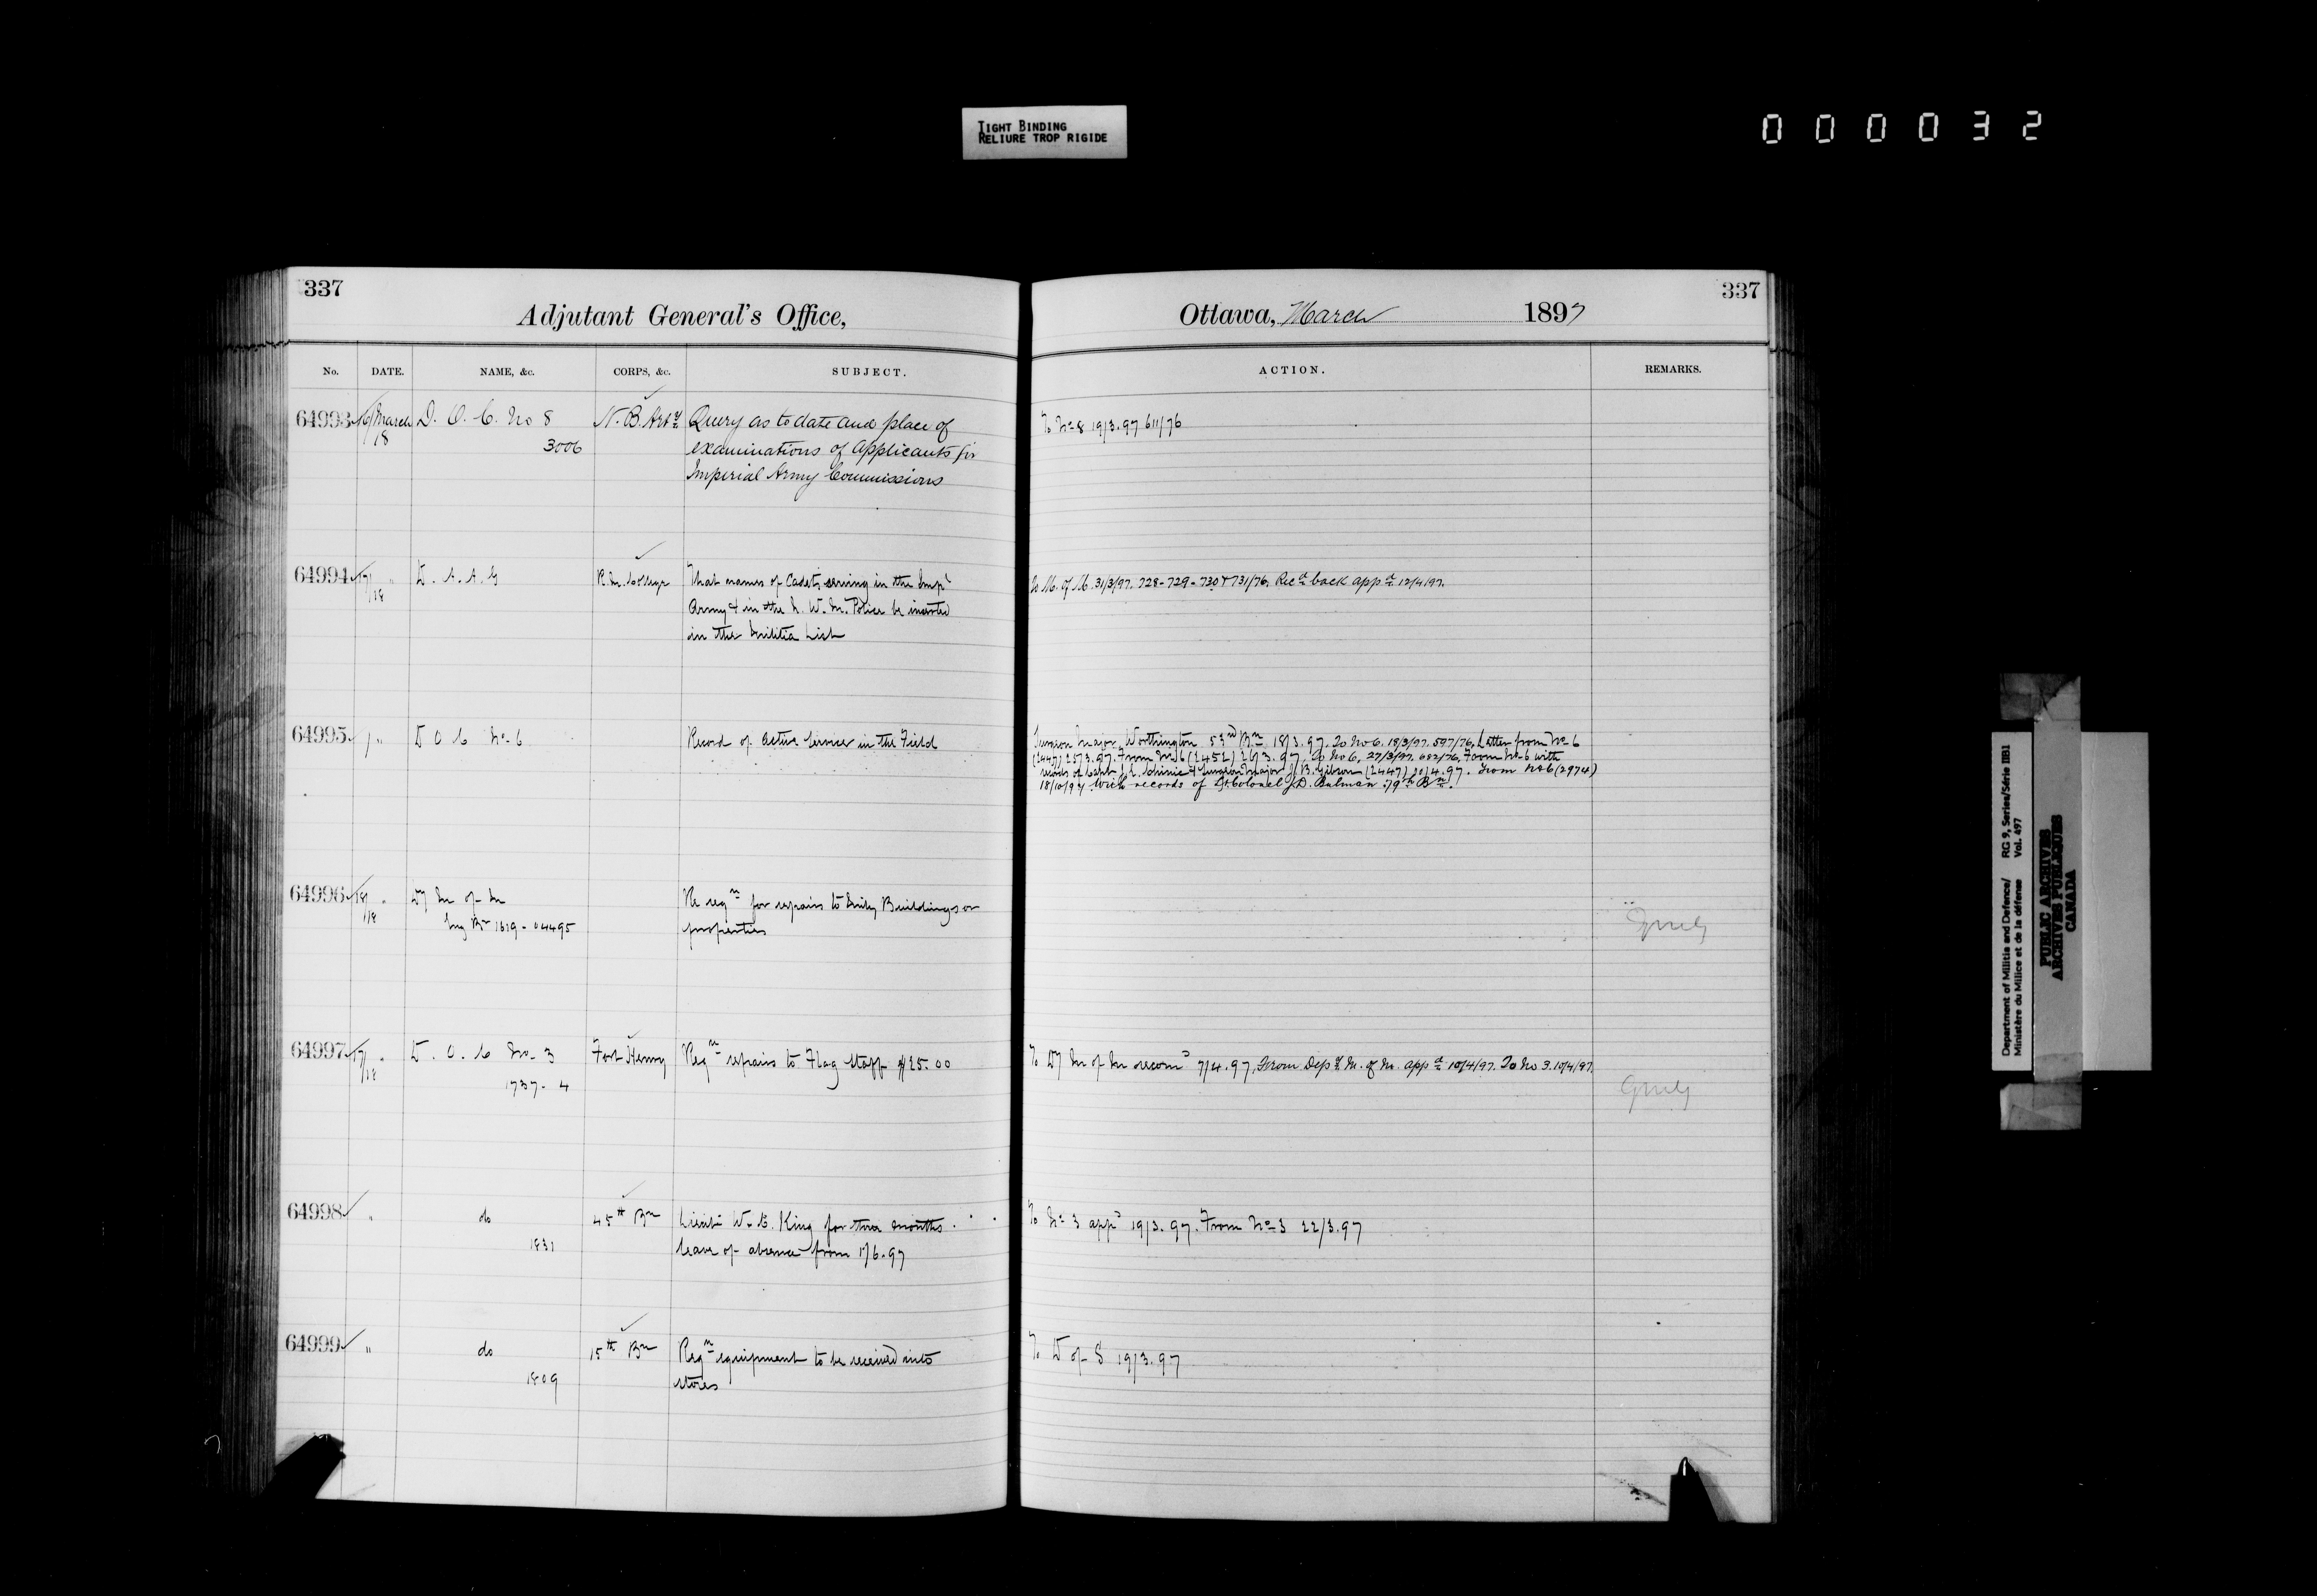 TIGHT BINDING
RELIURE TROP RIGIDE
000032
337
Adjutant General's Office,
No. DATE. NAME, &c. CORPS, &c. SUBJECT.
64993 16/March D. O. C. No 8 N. B. Arty Query as to date and place of
18 3006 examinations of applicants for
Imperial Army Commissions
64994 17/ " D. A. A. G R. M. College That names of Cadets serving in the Impl
/18 Army & in the N. W. M. Police be inserted
in the Militia List
64995 / " D O C No 6 Record of Active Service in the Field
64996 18/ " Dy M of M Re reqn for repairs to Mily Buildings or
/18 Eng Br 1619 - 04495 properties
64997 17/ " D. O. C No 3 Fort Henry Reqn repairs to Flag Staff $25.00
/18 1737 - 4
64998 " do 45th Bn Lieut W. E. King for three months
1831 leave of absence from 1/6.97
64999 " do 15th Bn Reqn equipment to be received into
1809 stores
337
Ottawa, March 1897
ACTION. REMARKS.
To No 8 19/3.97 611/76
To M. of M. 31/3/97. 728-729-730 & 731/76. Recd back appd 12/4/97.
Surgeon Major Worthington 53rd Bn 18/3.97. To No 6. 18/3/97. 597/76. Letter from No 6
(2447) 25/3.97. From No 6 (2452) 26/3.97. To No 6, 27/3/97. 682/76. From No 6 with
records of Capt & Surgeon Major J. B. Gibson (2447) 20/4.97. From No 6 (2974)
18/10/97 with records of Lt. Colonel J. D. Bulman 79th Bn.
To Dy M of M recomd 7/4.97. From Depy M. of M. appd 10/4/97. To No 3. 10/4/97.
To No 3 appd 19/3.97. From No 3 22/3.97
To D of S 19/3.97
Department of Militia and Defence/ RG 9, Series/Série IIB1
Ministère du Milice et de la défense Vol. 497
PUBLIC ARCHIVES
ARCHIVES PUBLIQUES
CANADA